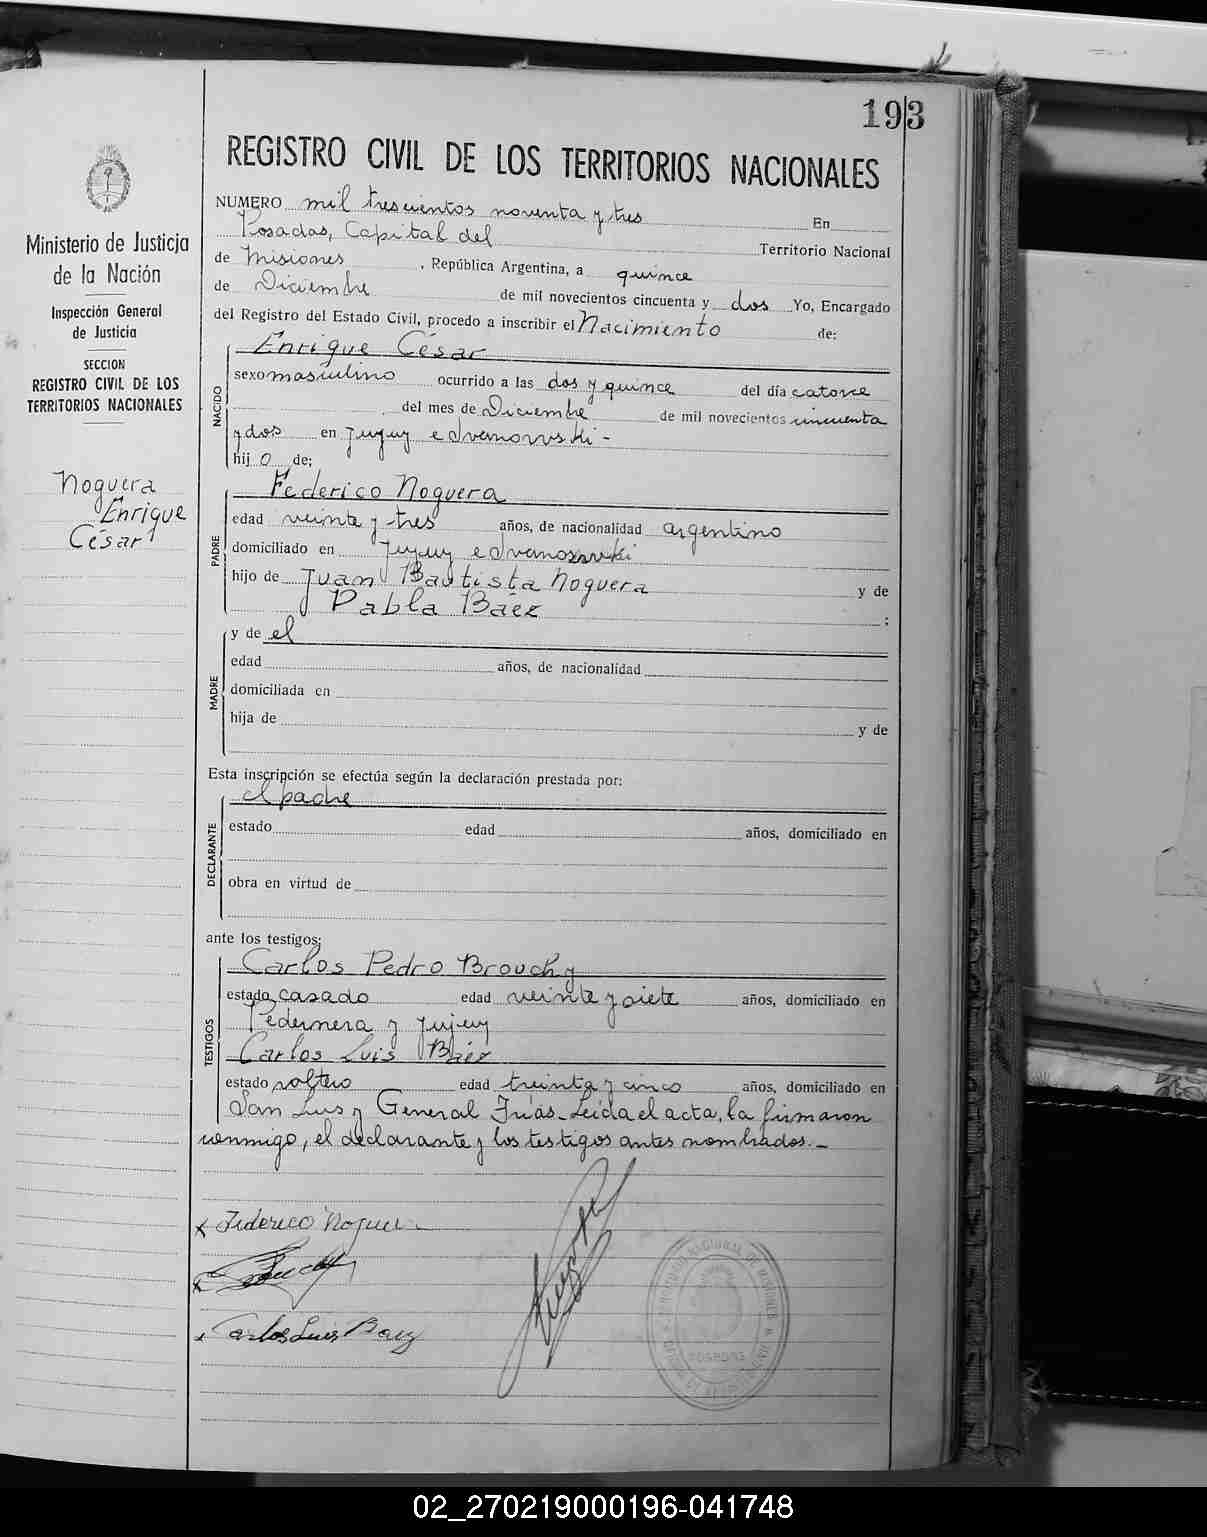 193
REGISTRO CIVIL DE LOS TERRITORIOS NACIONALES
Ministerio de Justicia
de la Nación
Inspección General
de Justicia
SECCION
REGISTRO CIVIL DE LOS
TERRITORIOS NACIONALES
Noguera
Enrique
César
NUMERO mil trescientos noventa y tres En
Posadas, Capital del Territorio Nacional
de Misiones, República Argentina, a quince
de Diciembre de mil novecientos cincuenta y dos Yo, Encargado
del Registro del Estado Civil, procedo a inscribir el Nacimiento de:
NACIDO
Enrique César
sexo masculino ocurrido a las dos y quince del día catorce
del mes de Diciembre de mil novecientos cincuenta
y dos en Jujuy e Ivanowski -
hij o de:
PADRE
Federico Noguera
edad veinte y tres años, de nacionalidad argentino
domiciliado en Jujuy e Ivanowski
hijo de Juan Bautista Noguera y de
Pabla Báez ;
MADRE
y de el
edad años, de nacionalidad
domiciliada en
hija de y de
Esta inscripción se efectúa según la declaración prestada por:
DECLARANTE
el padre
estado edad años, domiciliado en
obra en virtud de
ante los testigos:
TESTIGOS
Carlos Pedro Brouchy
estado casado edad veinte y siete años, domiciliado en
Pedernera y Jujuy
Carlos Luis Báez
estado soltero edad treinta y cinco años, domiciliado en
San Luis y General Frías - Leída el acta, la firmaron
conmigo, el declarante y los testigos antes nombrados. -
Federico Noguera
Carlos Luis Baez
POSADAS
02_270219000196-041748